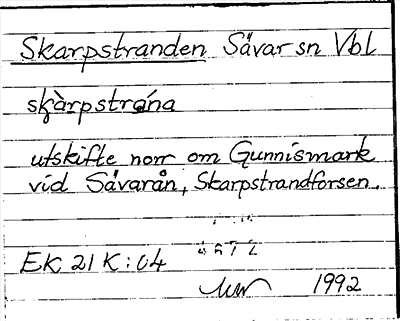 Skarpstranden Sävar sn Vbl
utskifte norr om Gunnismark
vid Sävarån, Skarpstrandforsen.
EK 21 K:04
1992